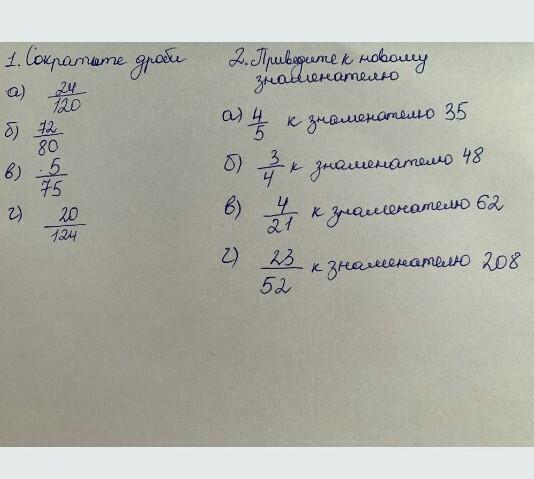 1. Сократите дроби
а) 24/120
б) 72/80
в) 5/75
г) 20/124
2. Приведите к новому
знаменателю
а) 4/5 к знаменателю 35
б) 3/4 к знаменателю 48
в) 4/21 к знаменателю 62
г) 23/52 к знаменателю 208